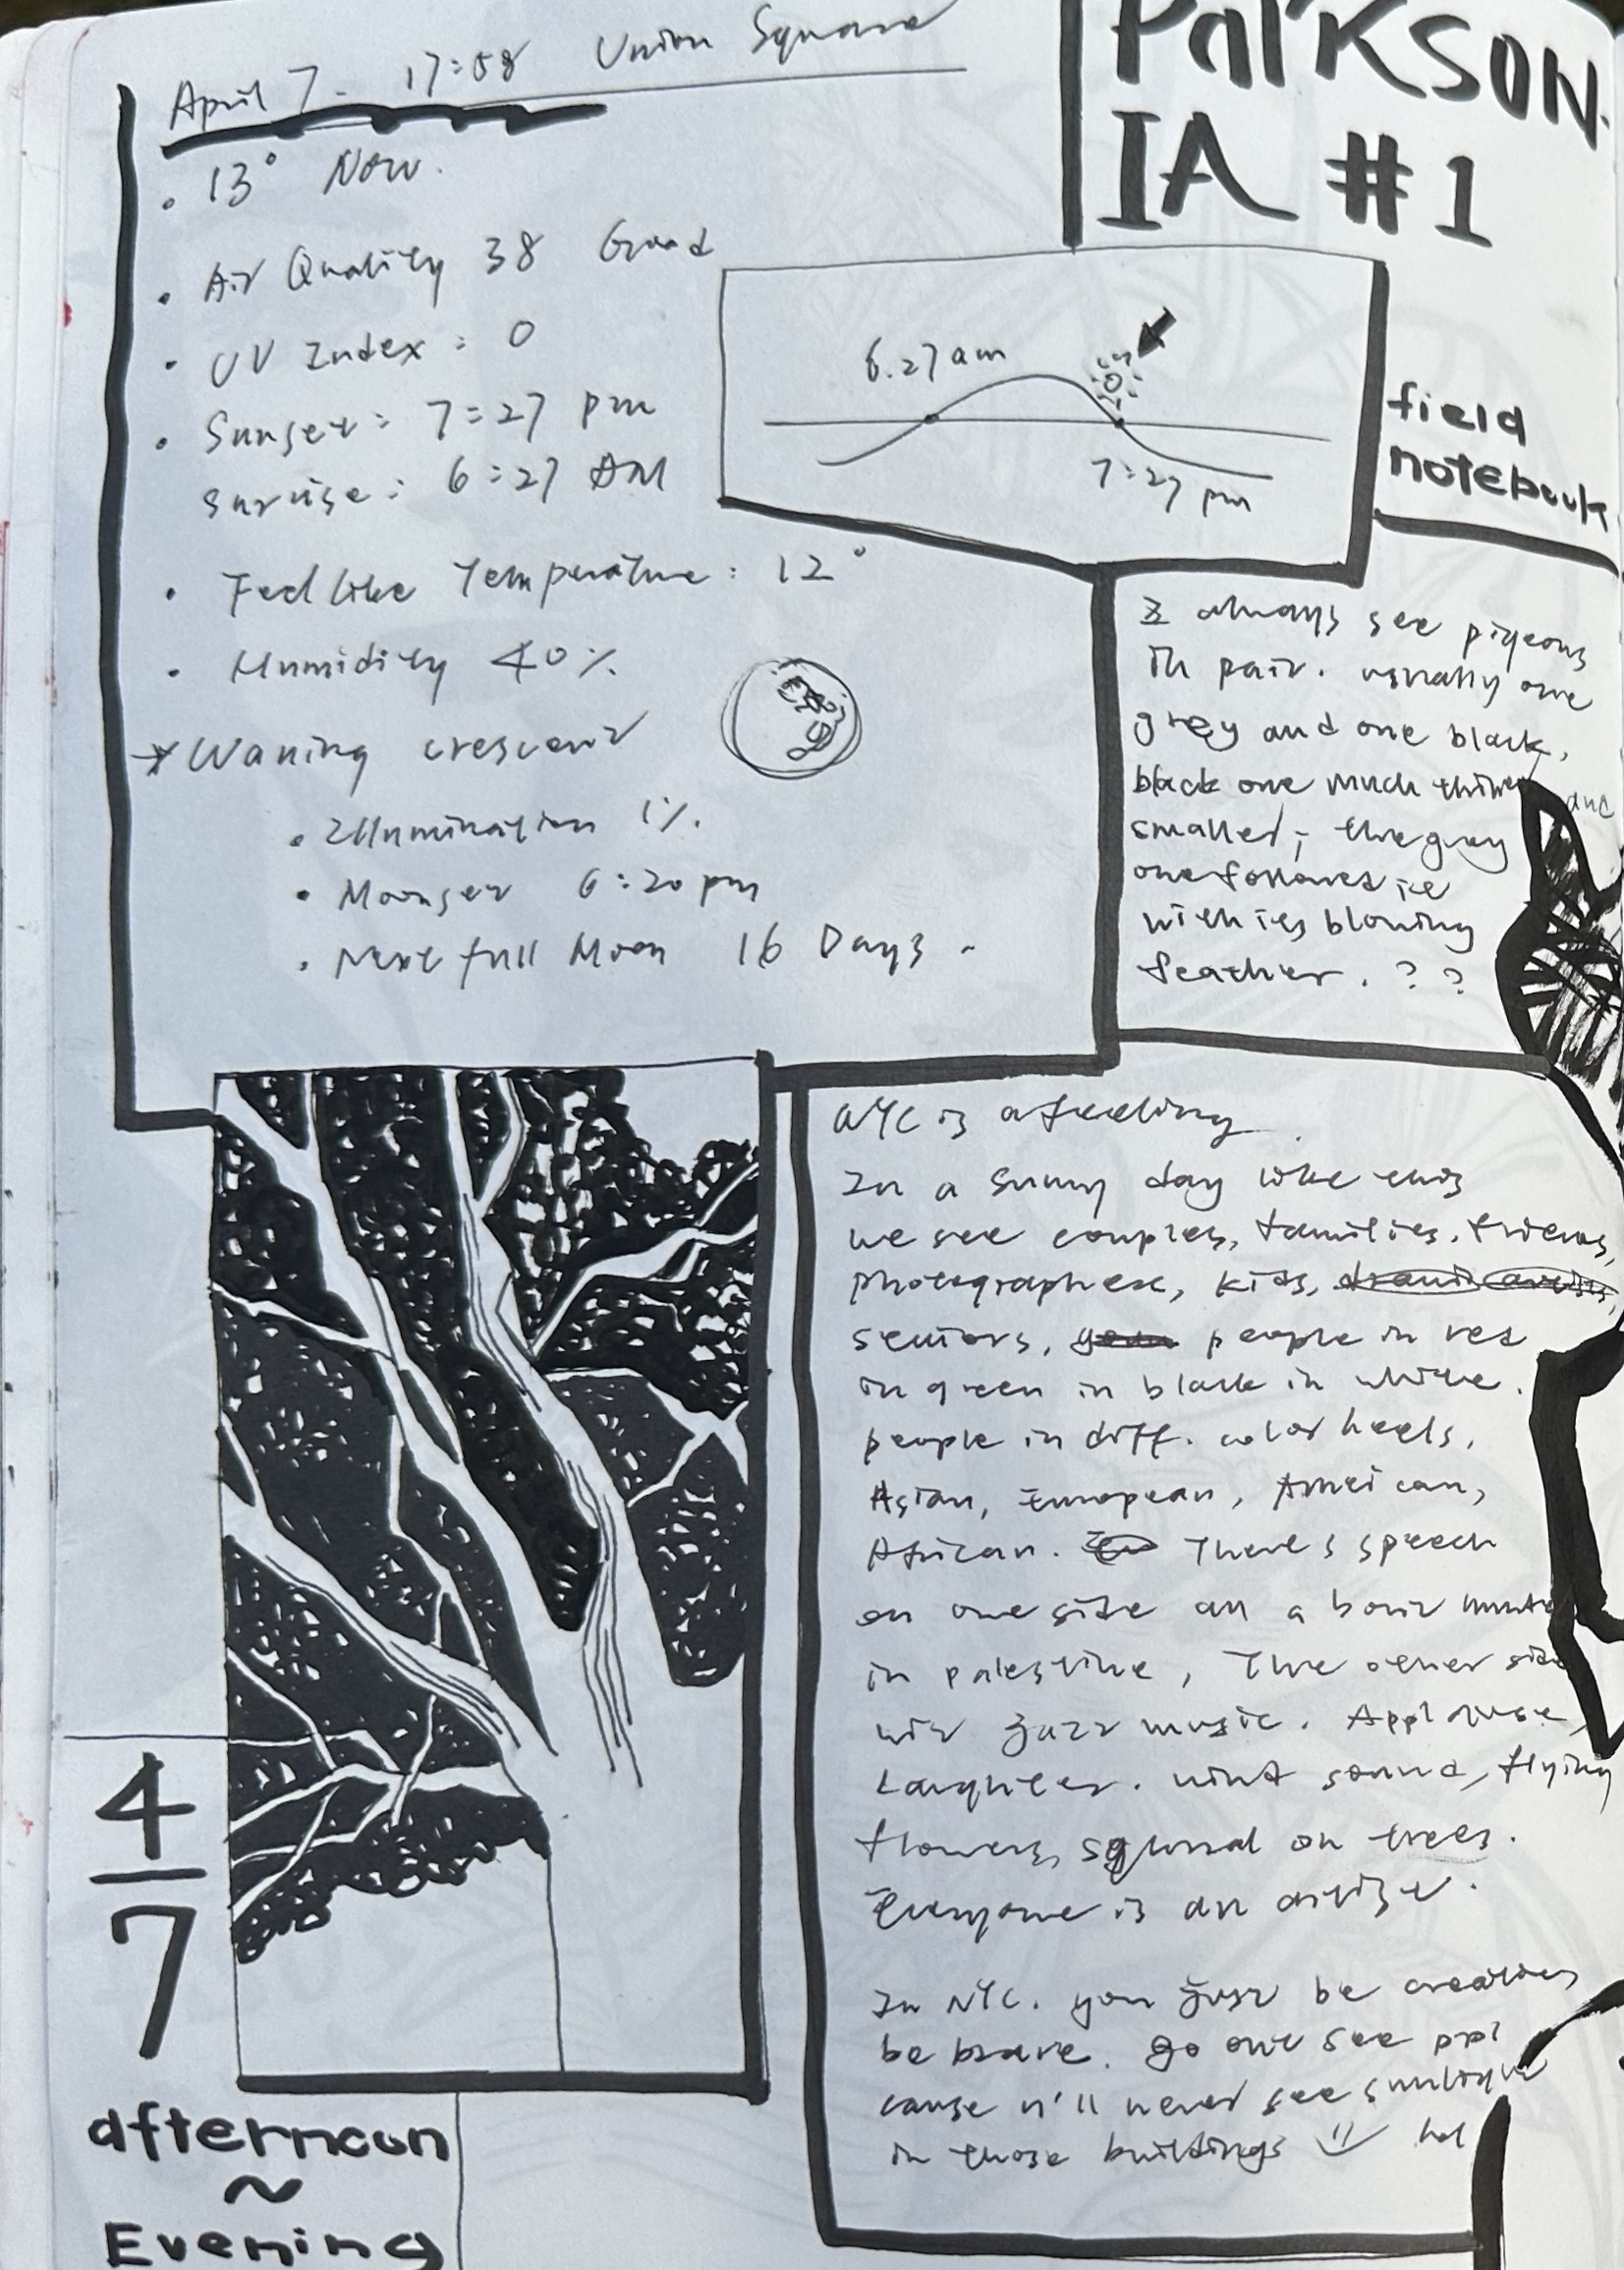 April 7. 17:58 Union Square
• 13° Now.
• Air Quality 38 Good
• UV Index: 0
• Sunset: 7:27 pm
Sunrise: 6:27 AM
• Feel like Temperature: 12°
• Humidity 40%
* Waning crescent
• Illumination 1%.
• Moonset 6:20 pm
• Next full Moon 16 Days.
PARKSON.
IA #1
6.27 am
7:27 pm
field
notebook
I always see pigeons
in pair. usually one
grey and one black,
black one much thiner and
smaller, the grey
one follows it
with its blowing
feather. ? ?
NYC is a feeling.
In a sunny day like this
we see couples, families, friends,
photographer, kids,
seniors, people in red
in green in black in white.
people in diff. color heels,
Asian, European, American,
African. There's speech
on one site on a
in palestine, The other side
wit jazz music. Applause,
Laughter. wind sound, flying
flowers, on trees.
Everyone is an artist.
In NYC. you just be
be brave. go out see ppl
cause u'll never see sunlight
in those buildings
4
7
afternoon
~
Evening